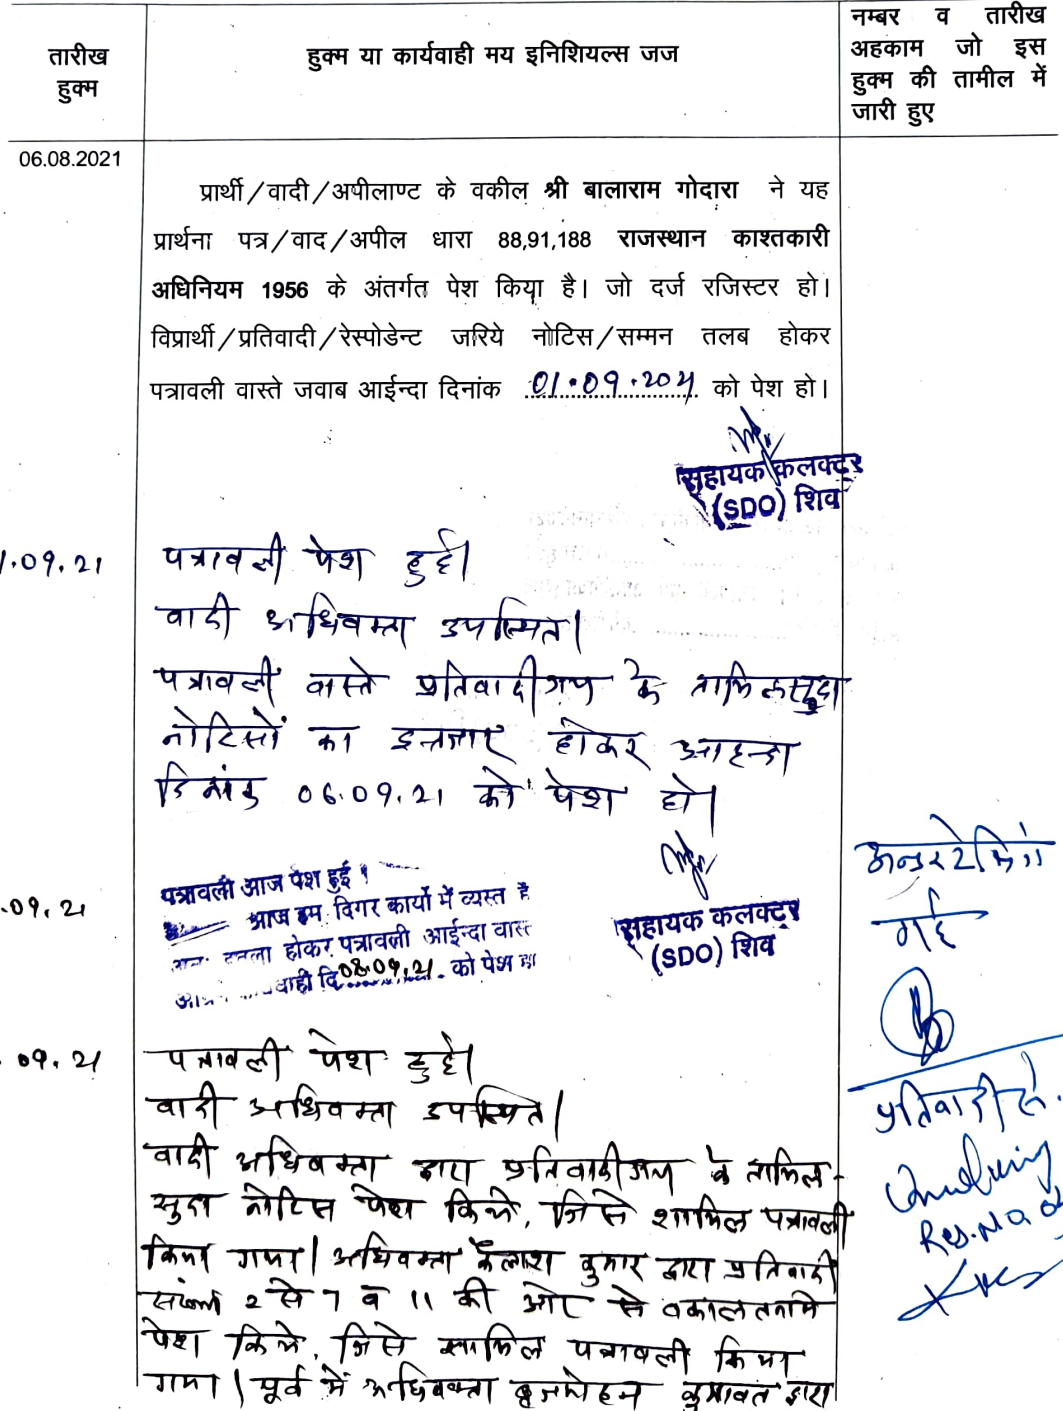 तारीख
हुक्म
हुक्म या कार्यवाही मय इनिशियल्स जज
नम्बर व तारीख
अहकाम जो इस
हुक्म की तामील में
जारी हुए
06.08.2021
प्रार्थी/वादी/अपीलाण्ट के वकील श्री बालाराम गोदारा ने यह
प्रार्थना पत्र/वाद/अपील धारा 88,91,188 राजस्थान काश्तकारी
अधिनियम 1956 के अंतर्गत पेश किया है। जो दर्ज रजिस्टर हो।
विप्रार्थी/प्रतिवादी/रेस्पोडेन्ट जरिये नोटिस/सम्मन तलब होकर
पत्रावली वास्ते जवाब आईन्दा दिनांक 01.09.2021 को पेश हो।
सहायक कलक्टर
(SDO) शिव
.09.21
पत्रावली पेश हुई।
वादी अधिवक्ता उपस्थित।
पत्रावली वास्ते प्रतिवादीगण के तामिलसुदा
नोटिसों का इन्तजार होकर आइन्दा
दिनांक 06.09.21 को पेश हो।
सहायक कलक्टर
(SDO) शिव
.09.21
पत्रावली आज पेश हुई।
आज हम दिगर कार्यो में व्यस्त है
होकर पत्रावली आईन्दा वास्
दि 08.09.21 को पेश
अन्डरटेकिंग
गई
09.21
पत्रावली पेश हुई।
वादी अधिवक्ता उपस्थित।
वादी अधिवक्ता द्वारा प्रतिवादीगण के तामिल-
सुदा नोटिस पेश किये, जिसे शामिल पत्रावली
किया गया। अधिवक्ता कैलाश कुमार द्वारा प्रतिवादी
संख्या 2 से 7 व 11 की ओर से वकालतनामे
पेश किये, जिसे शामिल पत्रावली किया
गया। पूर्व में अधिवक्ता बृजमोहन कुमावत द्वारा
प्रतिवादी सं.
Res. No